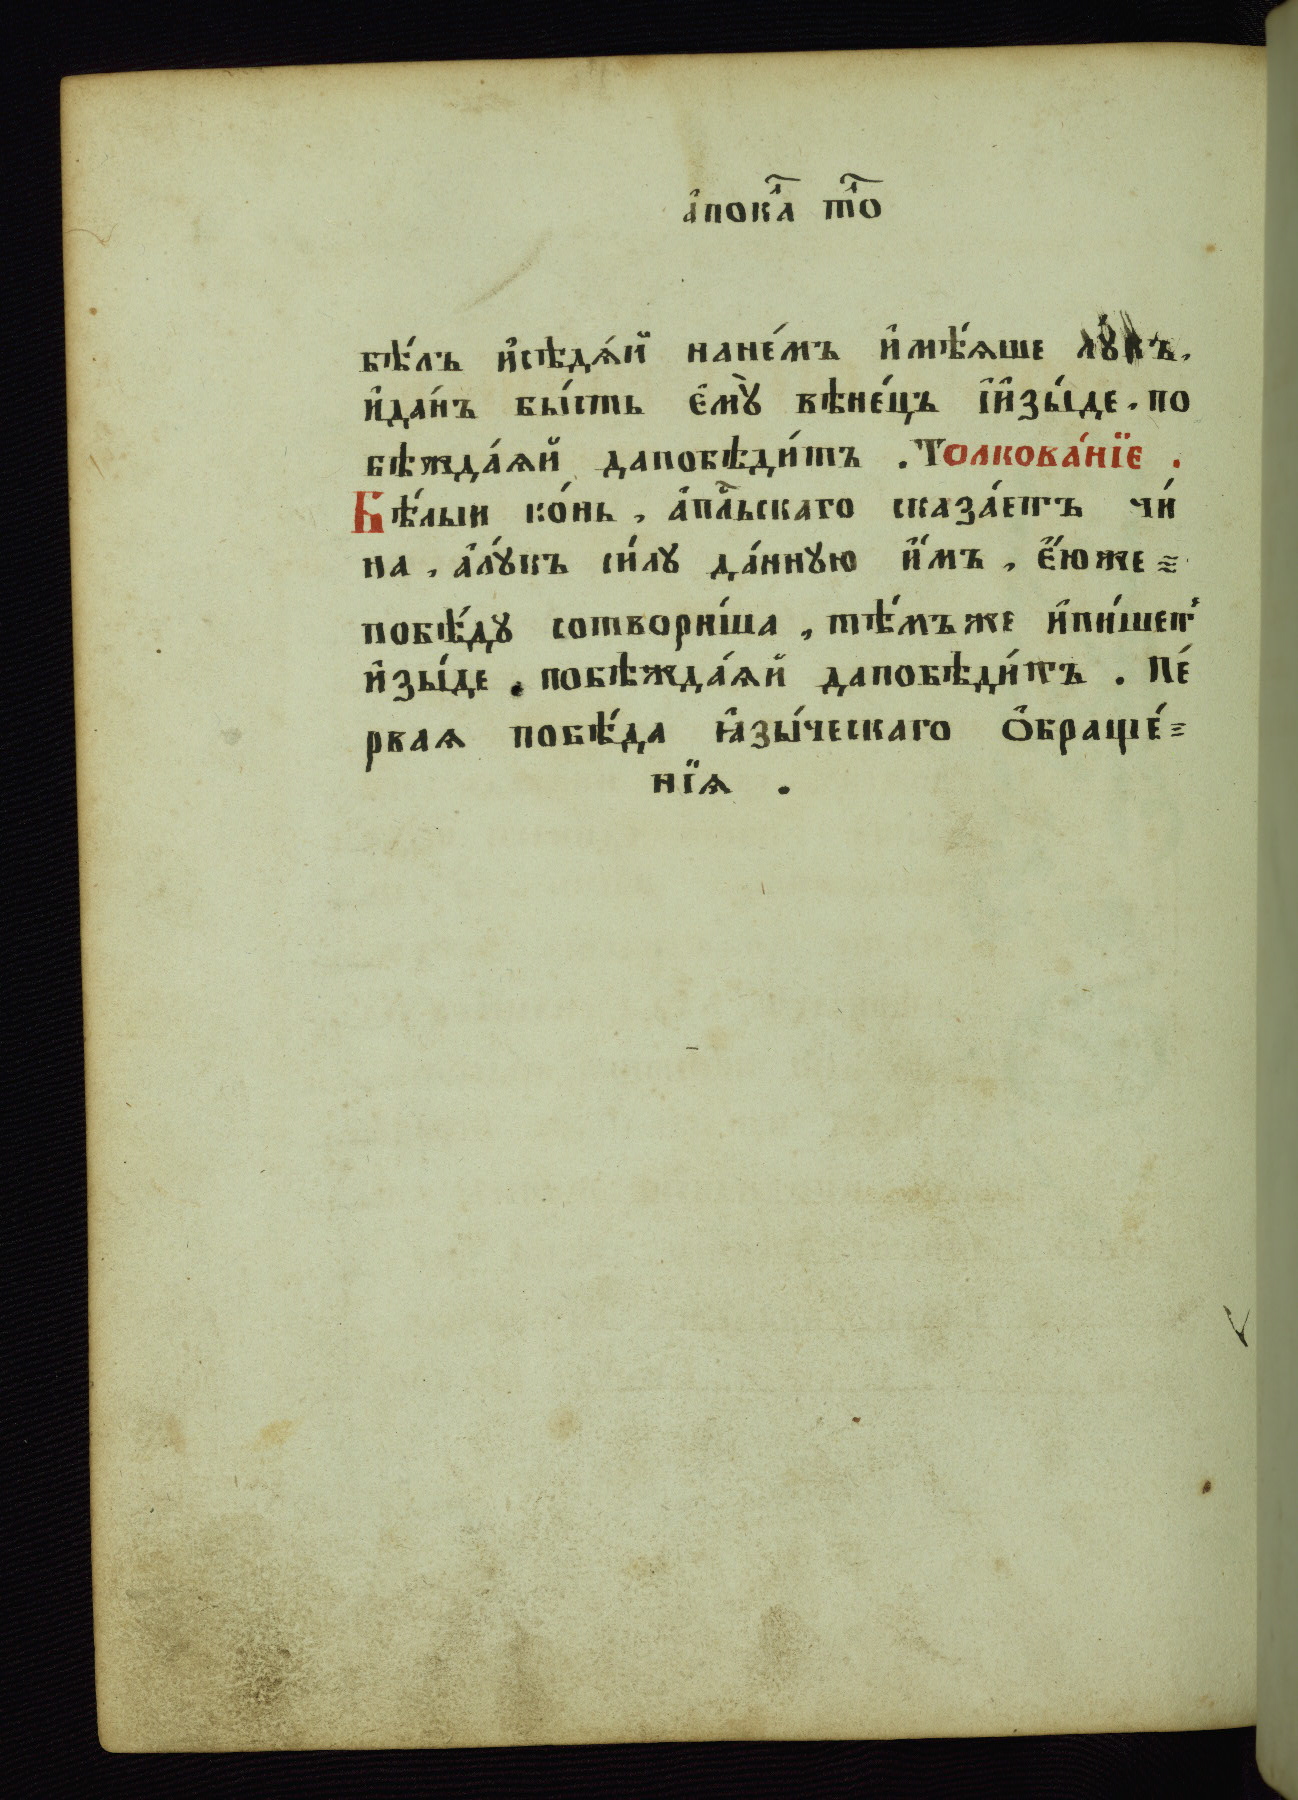 а҆пока́л то́л
бѣ́лъ и҆сѣдѧ́й нане́мъ и҆мѣ́ѧше лꙋ́къ,
и҆да́нъ бы́сть є҆мꙋ̀ вѣне́цъ і҆и҆зы́де. по
бѣжда́ѧй дапобѣди́тъ . Толкова́нїе .
Бѣ́лыи ко́нь , а҆пⷭ҇льскаго сказа́етъ чи́
на , а҆лꙋ́къ си́лꙋ да́ннꙋю и҆̀мъ , є҆́юже =
побѣ́дꙋ сотвори́ша , тѣ́мъже и҆пи́шет
и҆зы́де . побѣжда́ѧй дапобѣди́тъ . Пе́
рваѧ побѣ́да ꙗ҆зы́ческаго ѻ҆браще́=
нїѧ .